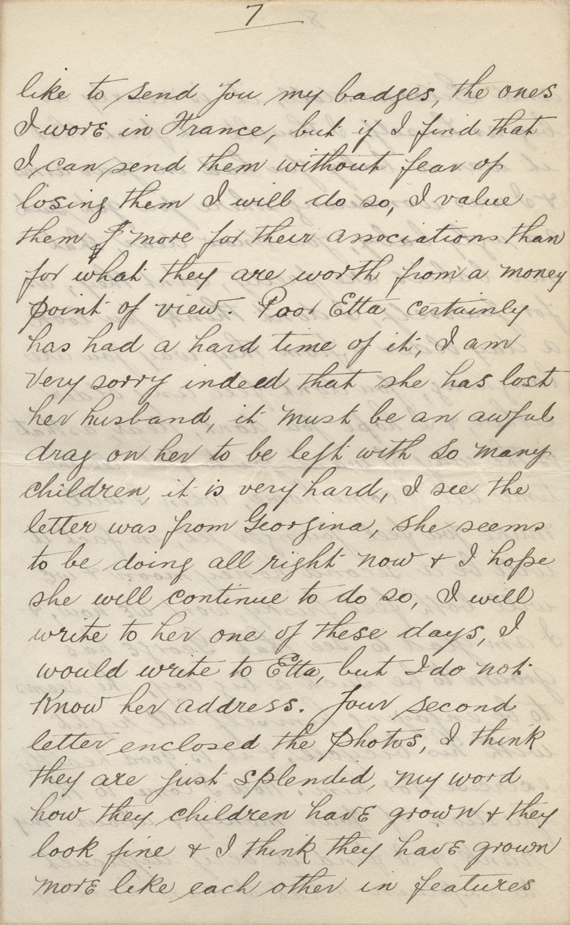 7
like to send you my badges, the ones
I wore in France, but if I find that
I can send them without fear of
losing them I will do so, I value
them more for their associations than
for what they are worth from a money
point of view. Poor Etta certainly
has had a hard time of it, I am
very sorry indeed that she has lost
her husband, it must be an awful
drag on her to be left with so many
children, it is very hard, I see the
letter was from Georgina, she seems
to be doing all right now & I hope
she will continue to do so, I will
write to her one of these days, I
would write to Etta, but I do not
know her address. Your second
letter enclosed the photos, I think
they are just splendid, my word
how they children have grown & they
look fine & I think they have grown
more like each other in features